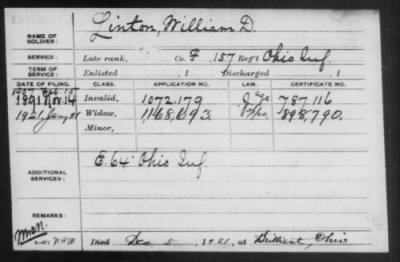 NAME OF SOLDIER: Linton, William D.
SERVICE: Late rank, Co. F, 157 Reg't Ohio Inf.
TERM OF SERVICE: Enlisted , 1 Discharged , 1
DATE OF FILING. CLASS. APPLICATION NO. LAW. CERTIFICATE NO.
1907 Feb. 15
1891 Nov. 14 Invalid, 1072.179 787.116
1921 Widow, 898.790.
Minor,
ADDITIONAL SERVICES: E. 64" Ohio Inf.
REMARKS:
Died Dec 5, 1921, at Brilliant, Ohio